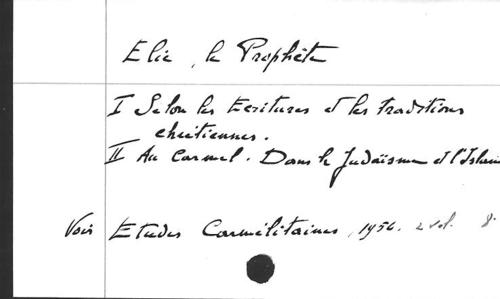 Elie, le Prophète
I Selon les Ecritures et les traditions
chrétiennes.
II Au Carmel. Dans le Judaïsme et l'Islam
Voir Etudes Carmélitaines, 1956. 2 vol. 8.